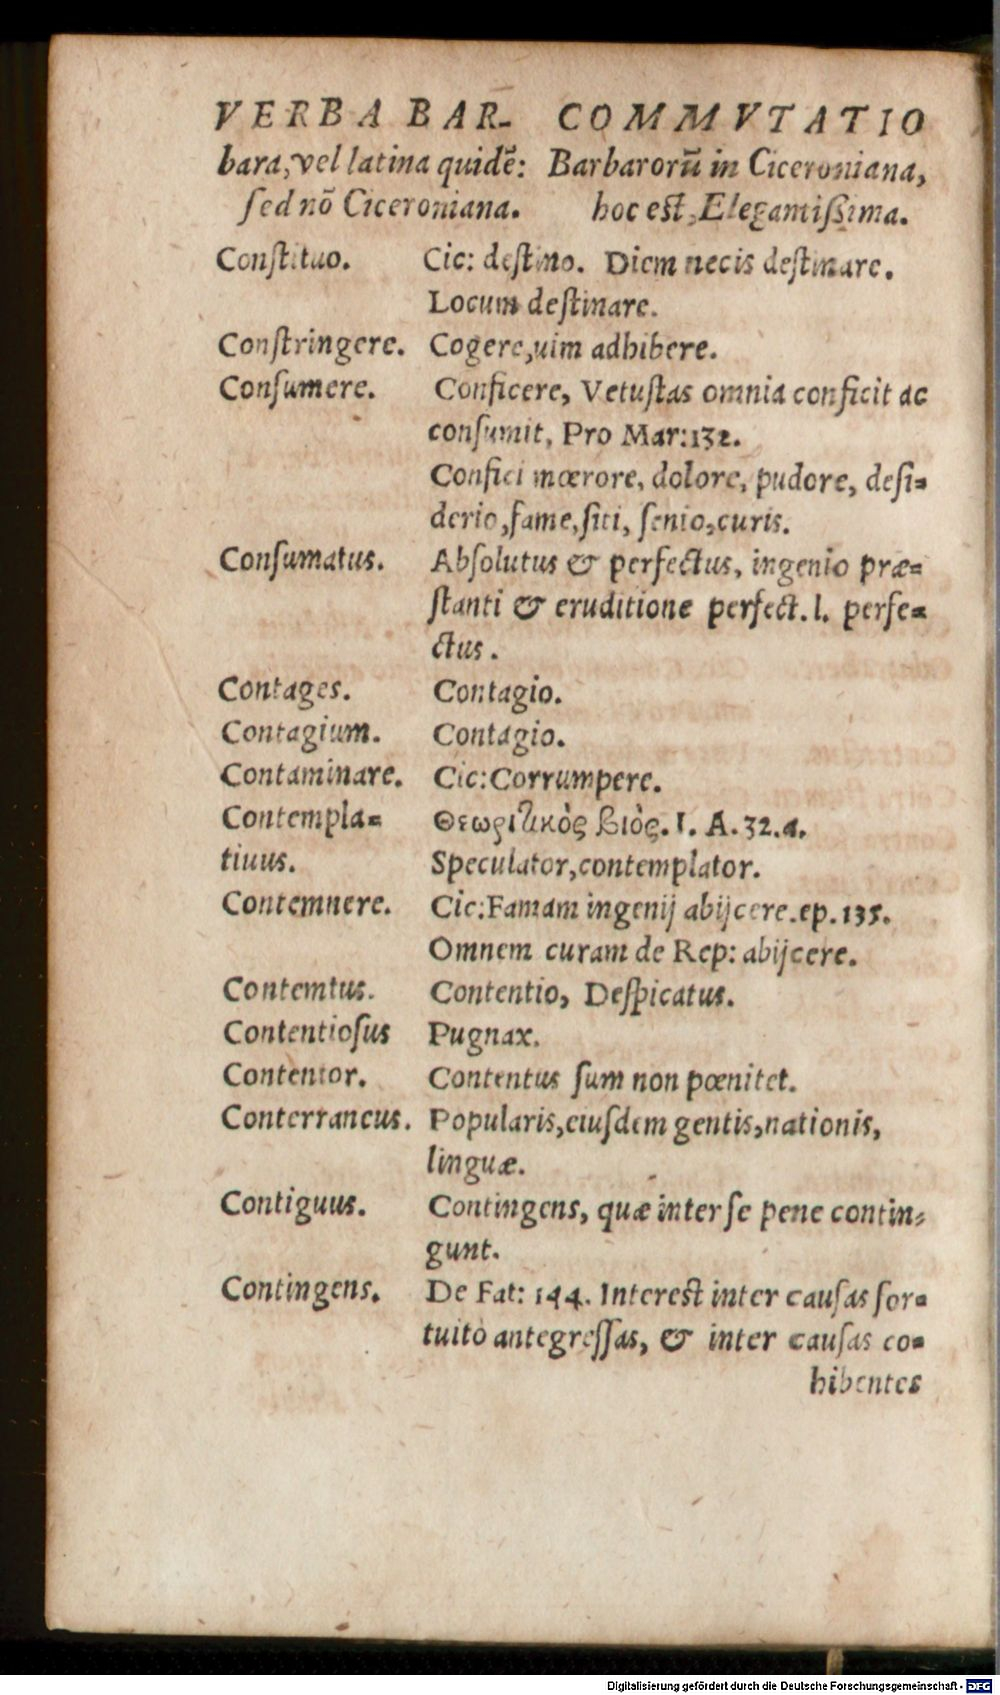 VERBA BAR- COMMVTATIO
bara, vel latina quidē: Barbarorū in Ciceroniana,
ſed nō Ciceroniana. hoc est, Elegantiſsima.
Conſtituo. Cic: deſtino. Diem necis deſtinare.
Locum deſtinare.
Conſtringere. Cogere, uim adhibere.
Conſumere. Conficere, Vetuſtas omnia conficit ac
conſumit, Pro Mar: 132.
Confici mœrore, dolore, pudore, deſi=
derio, fame, ſiti, ſenio, curis.
Conſumatus. Abſolutus & perfectus, ingenio præ=
ſtanti & eruditione perfect. l. perfe=
ctus.
Contages. Contagio.
Contagium. Contagio.
Contaminare. Cic: Corrumpere.
Contempla= Θεωριτικὸς βιὸς. I. A. 32. 4.
tiuus. Speculator, contemplator.
Contemnere. Cic: Famam ingenij abijcere. ep. 135.
Omnem curam de Rep: abijcere.
Contemtus. Contentio, Deſpicatus.
Contentioſus Pugnax.
Contentor. Contentus ſum non pœnitet.
Conterraneus. Popularis, eiuſdem gentis, nationis,
linguæ.
Contiguus. Contingens, quæ inter ſe pene contin=
gunt.
Contingens. De Fat: 144. Intereſt inter cauſas for=
tuitò antegreſſas, & inter cauſas co=
hibentes
Digitalisierung gefördert durch die Deutsche Forschungsgemeinschaft - DFG